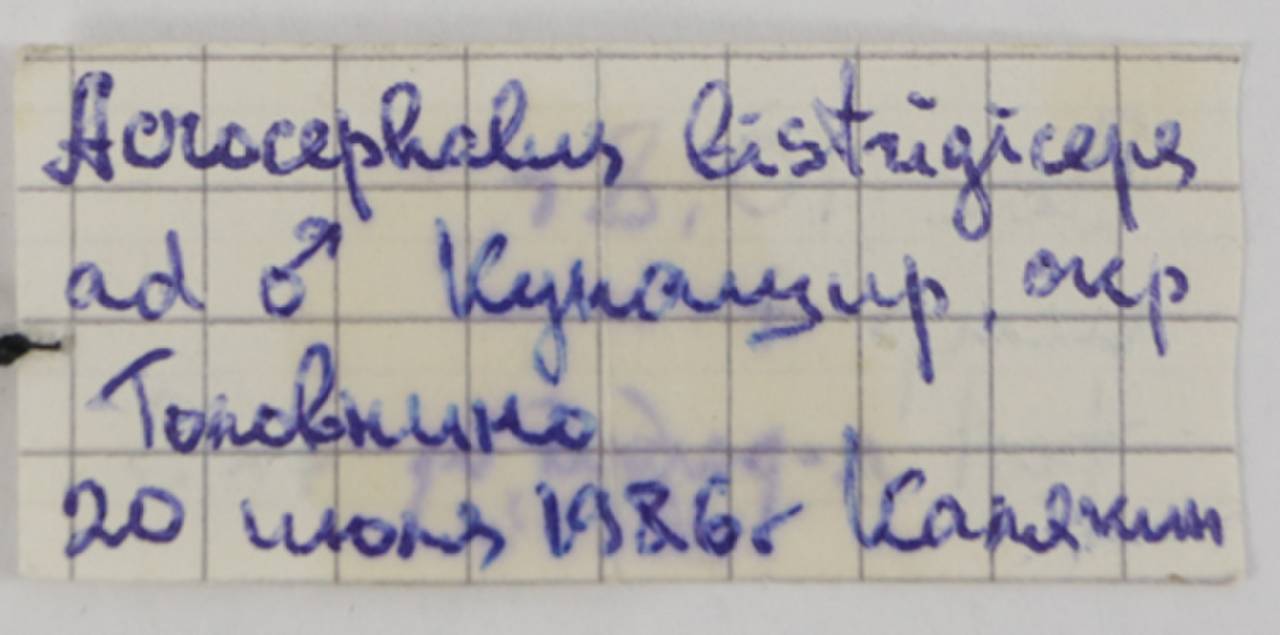 Acrocephalus bistrigiceps
ad ♂ Кунашир, окр
Головнино
20 июля 1986г Калякин